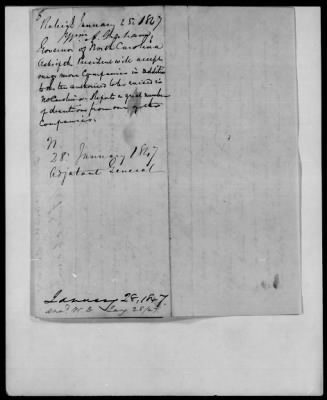 Raleigh January 25. 1847
Wm. A. Graham,
Governor of North Carolina
Asks if the President will accept
any more Companies in addition
to the ten authorized to be raised in
No Carolina. Reports a great number
of desertions from one of the
Companies.
28. January 1847
Adjutant General
January 28, 1847.